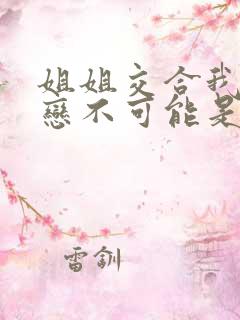 姐姐交合我
戀不可能是
雷釧